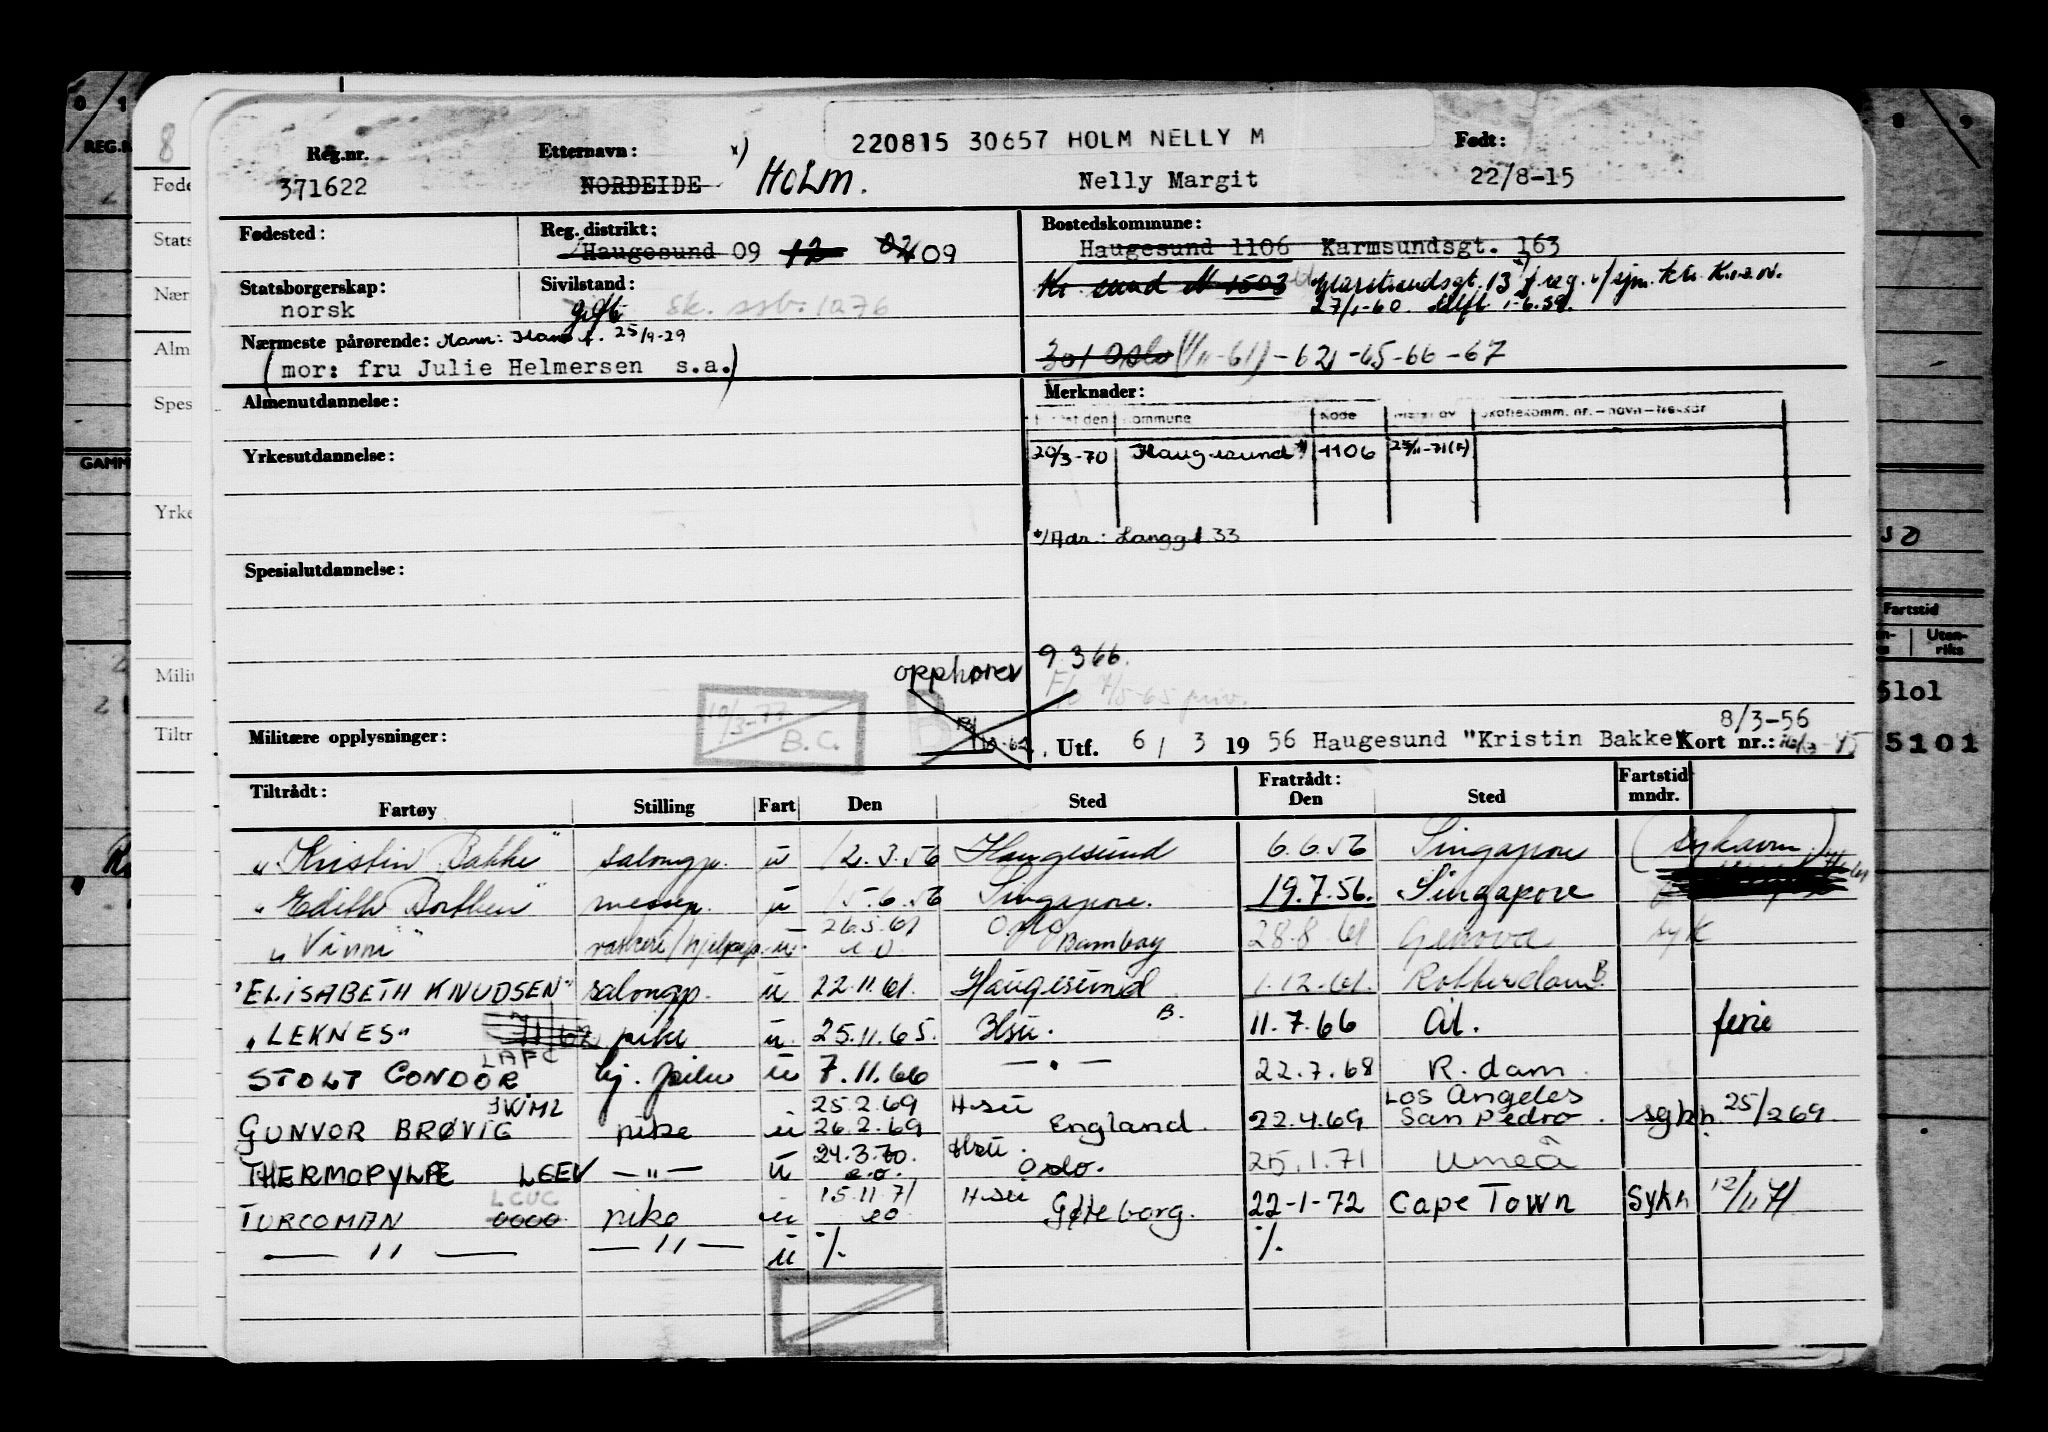 220815 30657 HOLM NELLY M
Reg.nr. Etternavn: x) Født:
371622 NORDEIDE HOLM. Nelly Margit 22/8-15
Fødested: Reg. distrikt: Bostedskommune:
Haugesund 09 12 02 09 Haugesund 1106 Karmsundsgt. 163
Statsborgerskap: Sivilstand:
norsk gift sk. ssb. 1276
Kr. sund N 1503
27/1-60. 1-6.59.
Nærmeste pårørende: Mann: 25/9-29
(mor: fru Julie Helmersen s.a.)
301 Oslo (1/11-61) - 62 -65-66-67
Almenutdannelse: Merknader:
kommune kode
20/3-70 Haugesund *) 1106
Yrkesutdannelse:
*) Adr.: Langgt 33
Spesialutdannelse:
opphører 9.3 66.
7/5-65 priv.
10/3-77
B.C.
Militære opplysninger: Utf. 6 / 3 19 56 Haugesund "Kristin Bakke" Kort nr.:
8/3-56
Tiltrådt: Fratrådt: Fartstid
Fartøy Stilling Fart Den Sted Den Sted mndr.
"Kristin Bakke" salongp. u 12.3.56 Haugesund 6.6.56 Singapore (sykavm.)
"Edith Borthen" messep. u 15.6.56 Singapore. 19.7.56. Singapore
"Vinni" u 26.5.61 Oslo Bombay 28.8.61 Genova syk
"ELISABETH KNUDSEN" salongp. u 22.11.61. Haugesund 1.12.61. Rotterdam B.
"LEKNES" pike u 25.11.65. Hsu. B. 11.7.66 ferie
STOLT CONDOR LAPC hj. pike u 7.11.66 — " — 22.7.68 R. dam.
GUNVOR BRØVIG pike u 25.2.69 26.2.69 H-su England. 22.4.69 Los Angeles San Pedro. 25/2 69.
THERMOPYLÆ LEEV — " — u 24.3.70. Hsu. Oslo. 25.1.71 Umeå
TURCOMAN LCUC pike u 15.11.71 H-su Gøteborg. 22-1-72 Cape Town Sykh 12/11 71
— " — — " — u %. %.
Føde
Stats
Nær
Alm
Spes
Yrke
Milit
Tiltr
REG.N
GAMM
Fartstid
Uten-
riks
5lol
5101